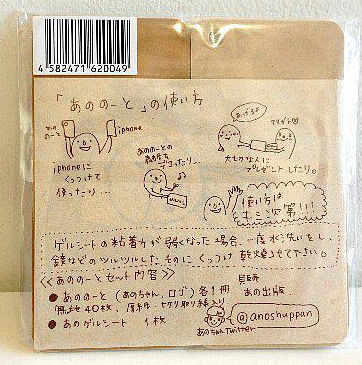 4 582471 620049
「あののーと」の使い方
あの
のーと
iphone
iphoneに
くっつけて
使ったり…
あののーとの
あげる♡
アリガト♡
大切な人に
プレゼントしたり。
使い方は
キミ次第い!
ゲルシートの粘着力が弱くなった場合、一度水洗いをし、
鏡などのツルツルしたものにくっつけ乾燥させて下さい。
《あののーとセット内容》
●あののーと(あのちゃん、ロゴ)各1冊
無地40枚、厚紙、切り取り線入り
●あのゲルシート 1枚
あの出版
@anoshuppan
あのちゃんTwitter